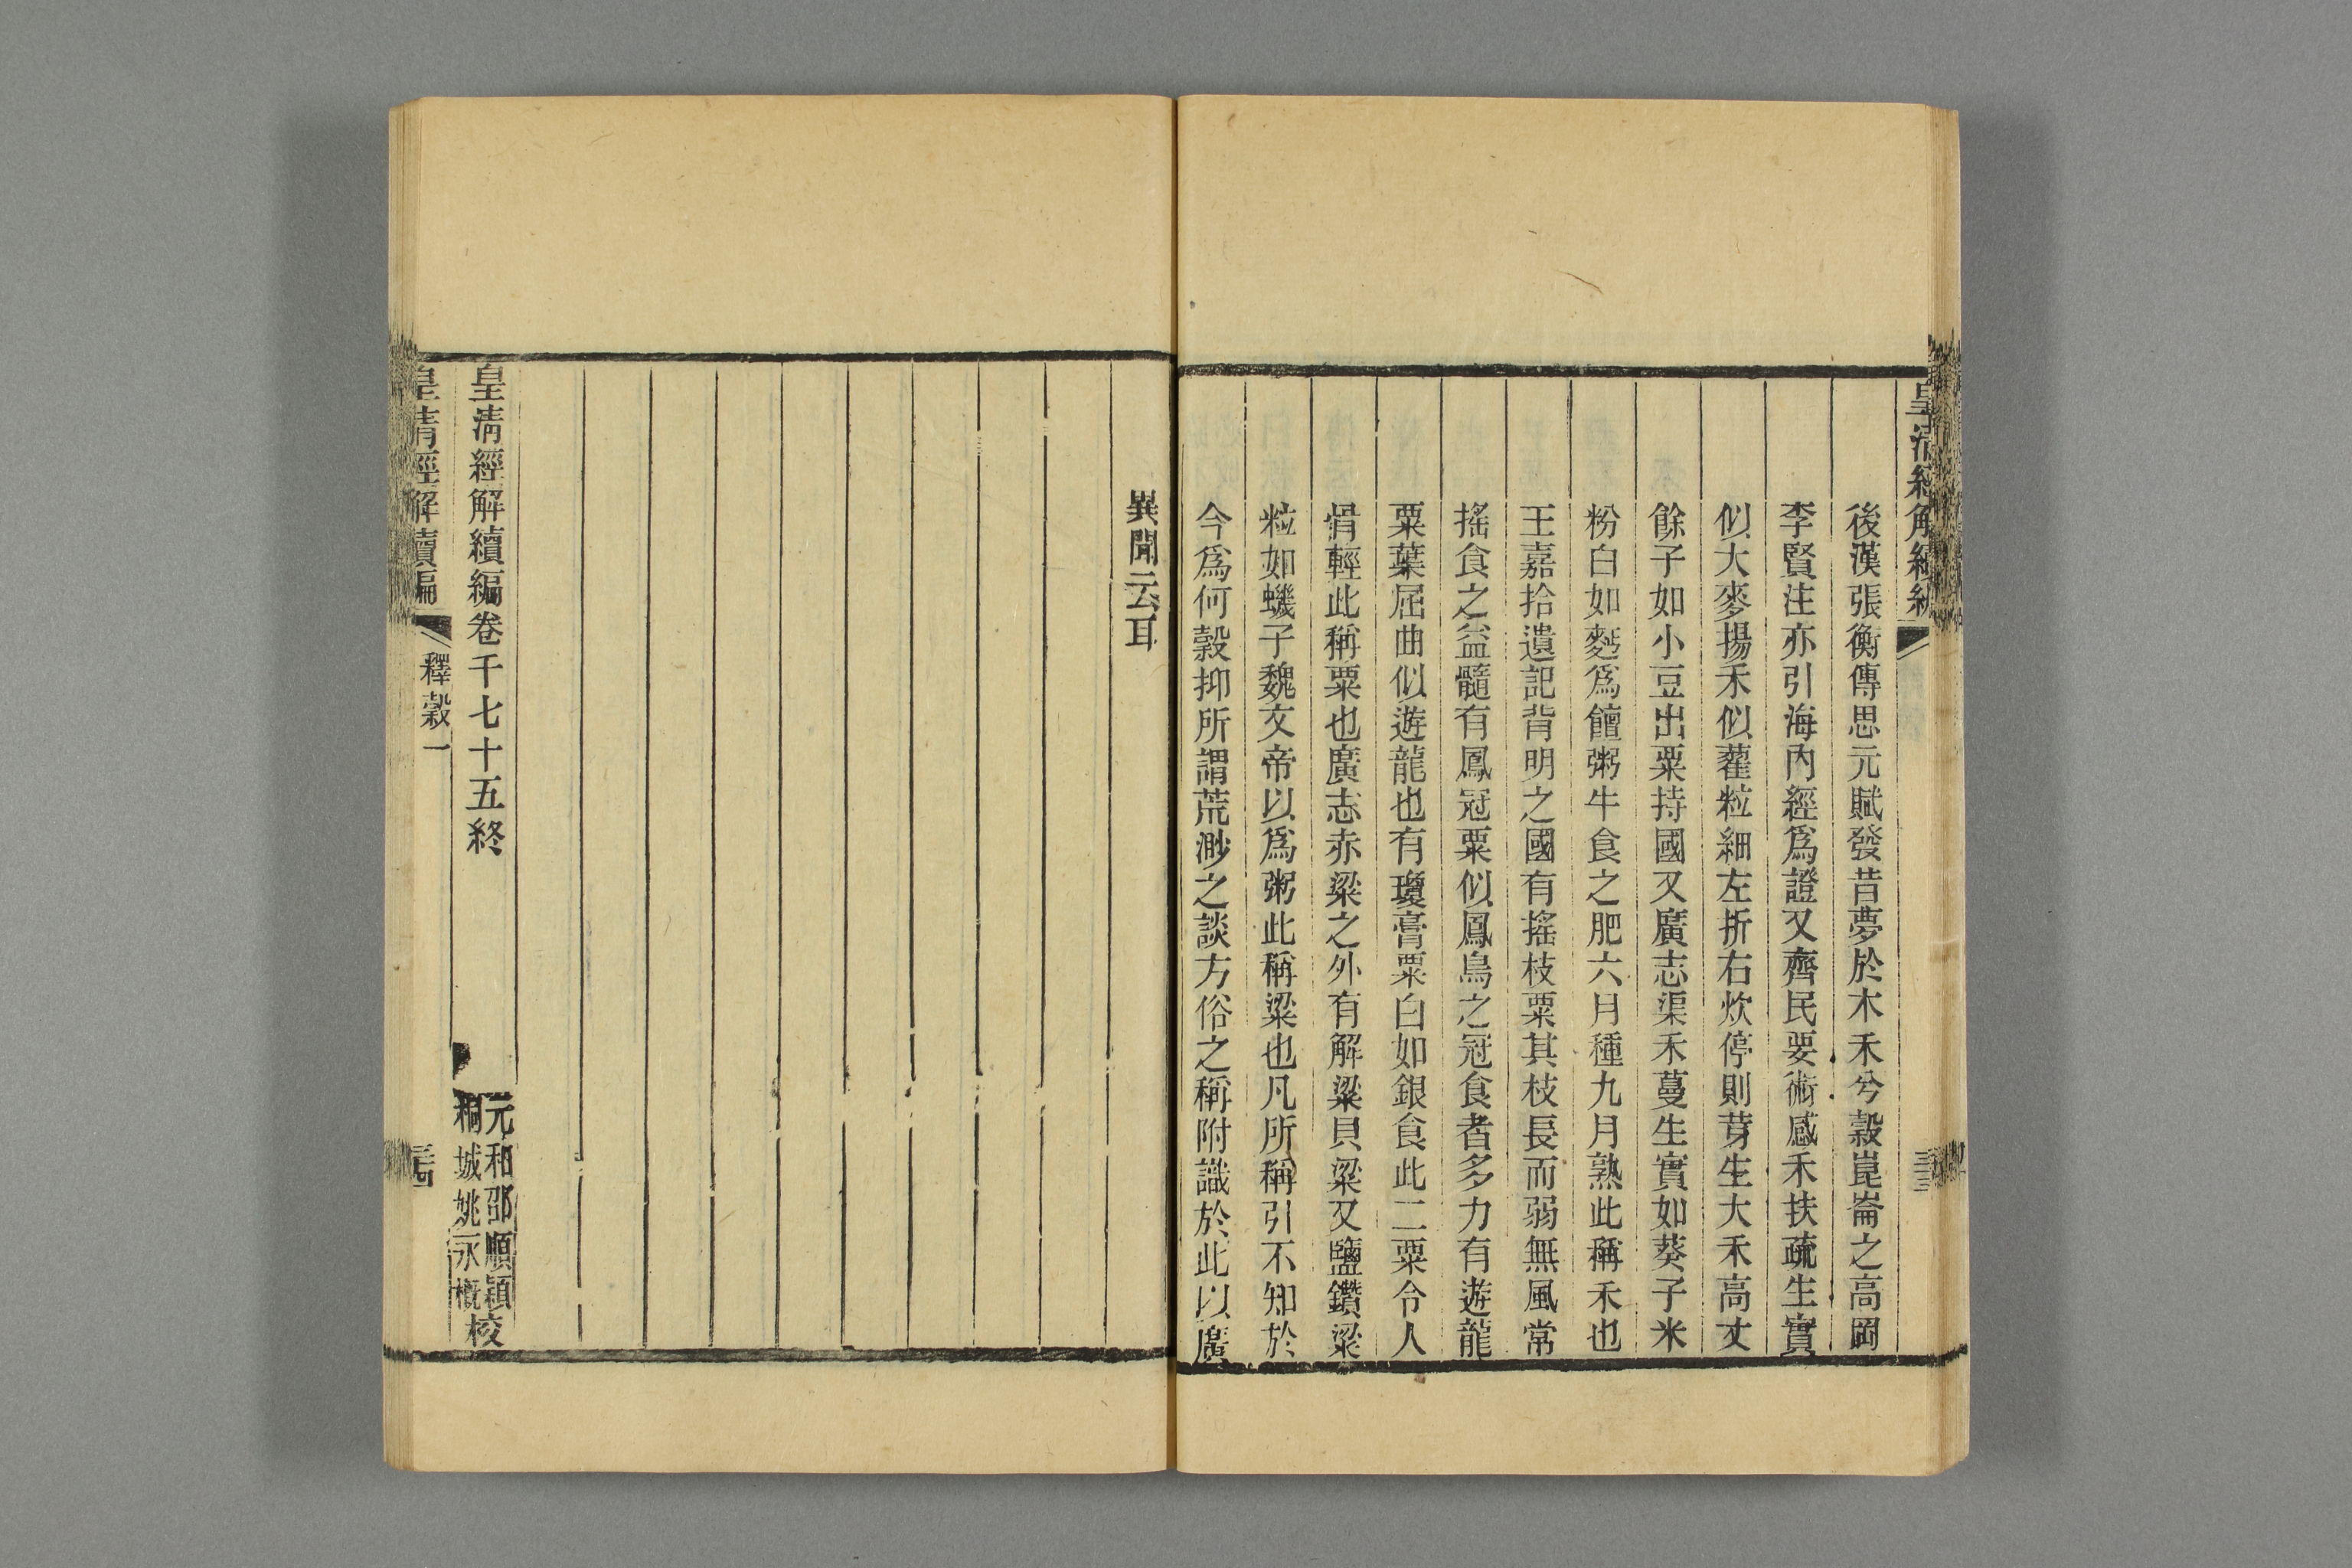 皇清經解續編
後漢張衡傳思元賦發昔夢於木禾兮穀崑崙之高岡
李賢注亦引海內經爲證又齊民要術感禾扶疏生實
似大麥揚禾似雚粒細左折右炊停則芽生大禾高丈
餘子如小豆出粟持國又廣志渠禾蔓生實如葵子米
粉白如麪爲饘粥牛食之肥六月種九月熟此稱禾也
王嘉拾遺記背明之國有搖枝粟其枝長而弱無風常
搖食之益髓有鳳冠粟似鳳鳥之冠食者多力有遊龍
粟葉屈曲似遊龍也有瓊膏粟白如銀食此二粟令人
骨輕此稱粟也廣志赤粱之外有解粱貝粱又鹽鑽粱
粒如蟣子魏文帝以爲粥此稱粱也凡所稱引不知於
今爲何穀抑所謂荒渺之談方俗之稱附識於此以廣
異聞云耳
皇清經解續編卷千七十五終
元和邵順穎
桐城姚永概
校
皇清經解續編
釋穀一